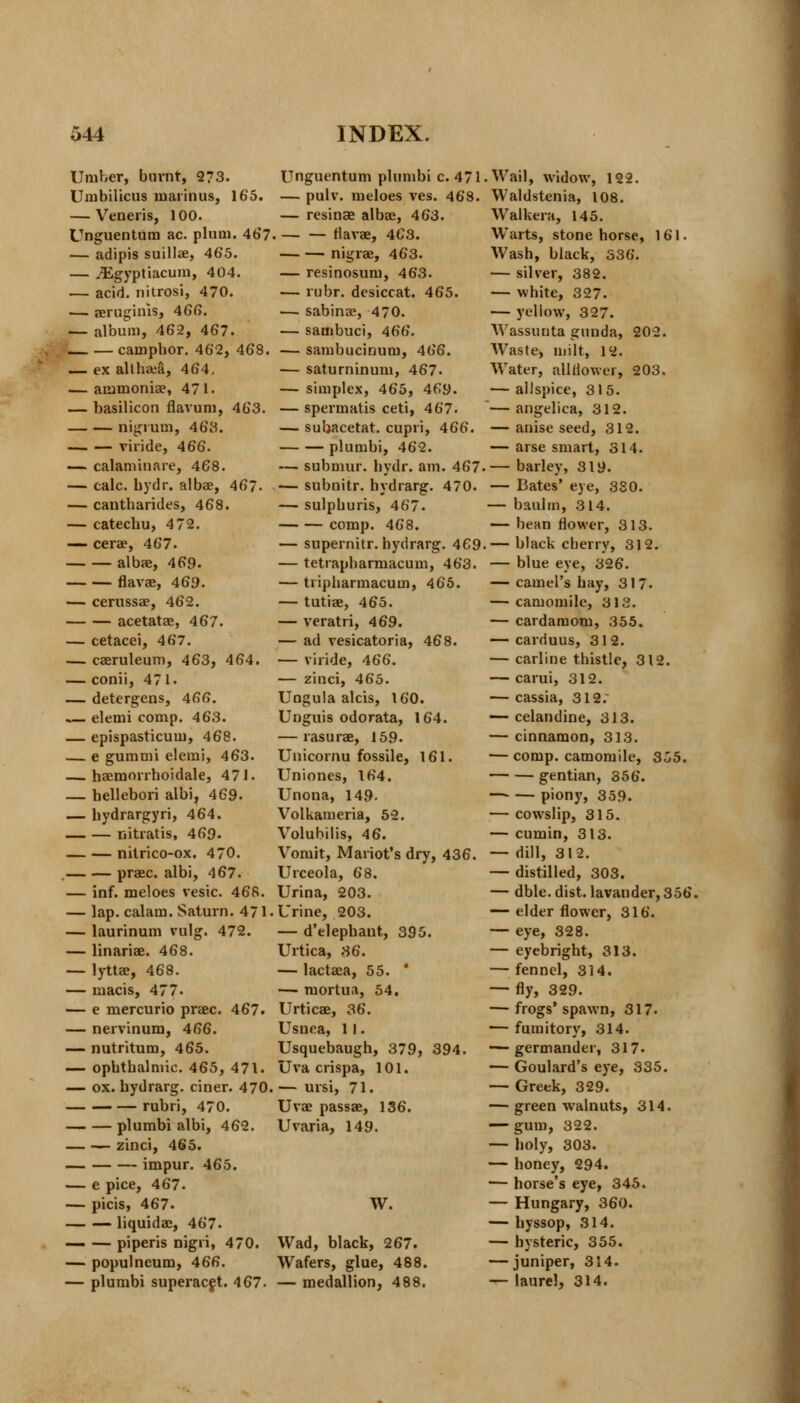 544 INDEX.
Umber, burnt, 273.
Umbilicus marinus, 165.
— Veneris, 100.
Unguentum ac. plum. 467.
— adipis suillæ, 465.
— Ægyptiacum, 404.
— acid. nitrosi, 470.
— æruginis, 466.
— album, 462, 467.
— — camphor. 462, 468.
— ex althæâ, 464.
— ammoniæ, 471.
— basilicon flavum, 463.
— — nigrum, 463.
— — viride, 466.
— calaminare, 468.
— calc. hydr. albæ, 467.
— cantharides, 468.
— catechu, 472.
— ceræ, 467.
— — albæ, 469.
— — flavæ, 469.
— cerussæ, 462.
— — acetatæ, 467.
— cetacei, 467.
— cæruleum, 463, 464.
— conii, 471.
— detergens, 466.
— elemi comp. 463.
— epispasticum, 468.
— e gummi elemi, 463.
— hæmorrhoidale, 471.
— hellebori albi, 469.
— hydrargyri, 464.
— — nitratis, 469.
— — nitrico-ox. 470.
— — præc. albi, 467.
— inf. meloes vesic. 468.
— lap. calam. Saturn. 471.
— laurinum vulg. 472.
— linariæ. 468.
— lyttæ, 468.
— macis, 477.
— e mercurio præc. 467.
— nervinum, 466.
— nutritum, 465.
— ophthalmic. 465, 471.
— ox. hydrarg. ciner. 470.
— — — rubri, 470.
— — plumbi albi, 462.
— — zinci, 465.
— — — impur. 465.
— e pice, 467.
— picis, 467.
— — liquidæ, 467.
— — piperis nigri, 470.
— populneum, 466.
— plumbi superacet. 467.
Unguentum plumbi c. 471.
— pulv. meloes ves. 468.
— resinæ albæ, 463.
— — flavæ, 463.
— — nigræ, 463.
— resinosum, 463.
— rubr. desiccat. 465.
— sabinæ, 470.
— sambuci, 466.
— sambucinum, 466.
— saturninum, 467.
— simplex, 465, 469.
— spermatis ceti, 467.
— subacetat. cupri, 466.
— — plumbi, 462.
— submur. hydr. am. 467.
— subnitr. hydrarg. 470.
— sulphuris, 467.
— — comp. 468.
— supernitr. hydrarg. 469.
— tetrapharmacum, 463.
— tripharmacum, 465.
— tutiæ, 465.
— veratri, 469.
— ad vesicatoria, 468.
— viride, 466.
— zinci, 465.
Ungula alcis, 160.
Unguis odorata, 164.
— rasuræ, 159.
Unicornu fossile, 161.
Uniones, 164.
Unona, 149.
Volkameria, 52.
Volubilis, 46.
Vomit, Mariot's dry, 436.
Urceola, 68.
Urina, 203.
Urine, 203.
— d'elephant, 395.
Urtica, 36.
— lactæa, 55.
— mortua, 54.
Urticæ, 36.
Usnea, 11.
Usquebaugh, 379, 394.
Uva crispa, 101.
— ursi, 71.
Uvæ passæ, 136.
Uvaria, 149.
W.
Wad, black, 267.
Wafers, glue, 488.
— medallion, 488.
Wail, widow, 122.
Waldstenia, 108.
Walkera, 145.
Warts, stone horse, 161.
Wash, black, 336.
— silver, 382.
— white, 327.
— yellow, 327.
Wassunta gunda, 202.
Waste, milt, 12.
Water, allflower, 203.
— allspice, 315.
— angelica, 312.
— anise seed, 312.
— arse smart, 314.
— barley, 319.
— Bates' eye, 380.
— baulm, 314.
— bean flower, 313.
— black cherry, 312.
— blue eye, 326.
— camel's hay, 317.
— camomile, 313.
— cardamom, 355.
— carduus, 312.
— carline thistle, 312.
— carui, 312.
— cassia, 312.
— celandine, 313.
— cinnamon, 313.
— comp. camomile, 355.
— — gentian, 356.
— — piony, 359.
— cowslip, 315.
— cumin, 313.
— dill, 312.
— distilled, 303.
— dble. dist. lavander, 356.
— elder flower, 316.
— eye, 328.
— eyebright, 313.
— fennel, 314.
— fly, 329.
— frogs' spawn, 317.
— fumitory, 314.
— germander, 317.
— Goulard's eye, 335.
— Greek, 329.
— green walnuts, 314.
— gum, 322.
— holy, 303.
— honey, 294.
— horse's eye, 345.
— Hungary, 360.
— hyssop, 314.
— hysteric, 355.
— juniper, 314.
— laurel, 314.